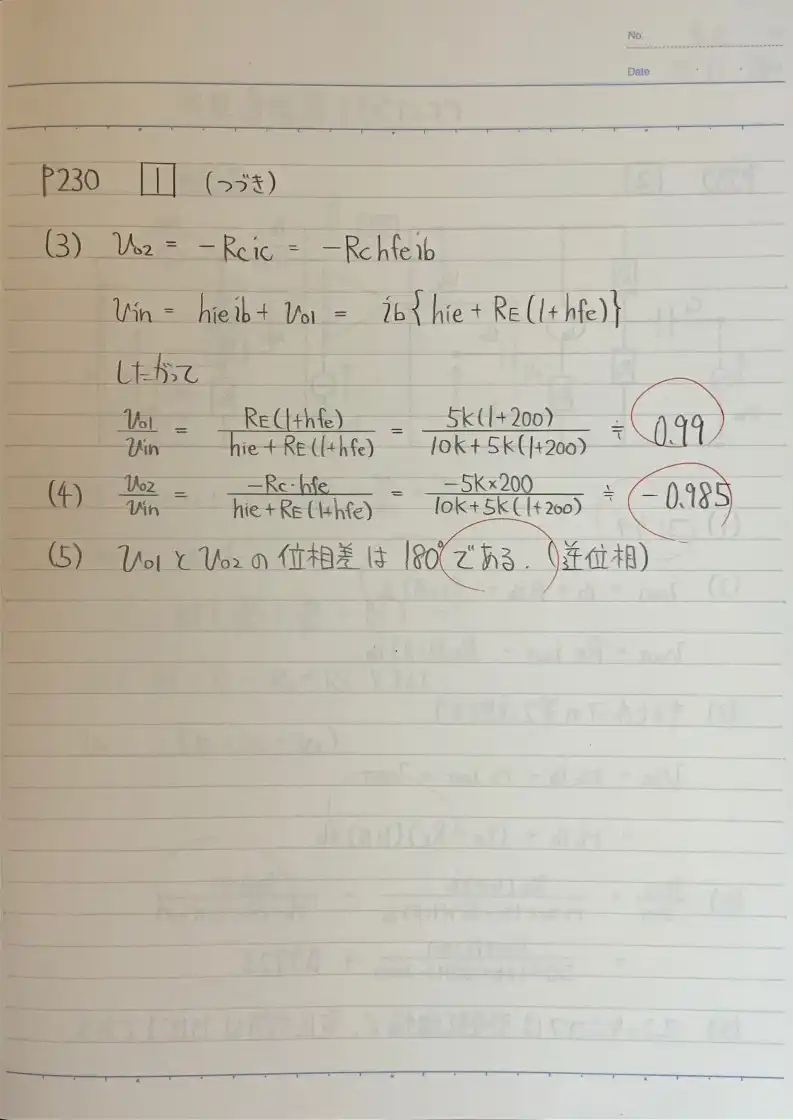 No.
Date
P230 1 (つづき)
(3) Vo2 = -Rcic = -Rchfeib
Vin = hieib + Vo1 = ib{hie + RE(1+hfe)}
したがって
Vo1/Vin = RE(1+hfe)/hie+RE(1+hfe) = 5k(1+200)/10k+5k(1+200) ≒ 0.99
(4) Vo2/Vin = -Rc·hfe/hie+RE(1+hfe) = -5k×200/10k+5k(1+200) ≒ -0.985
(5) Vo1とVo2の位相差は180°である. (逆位相)